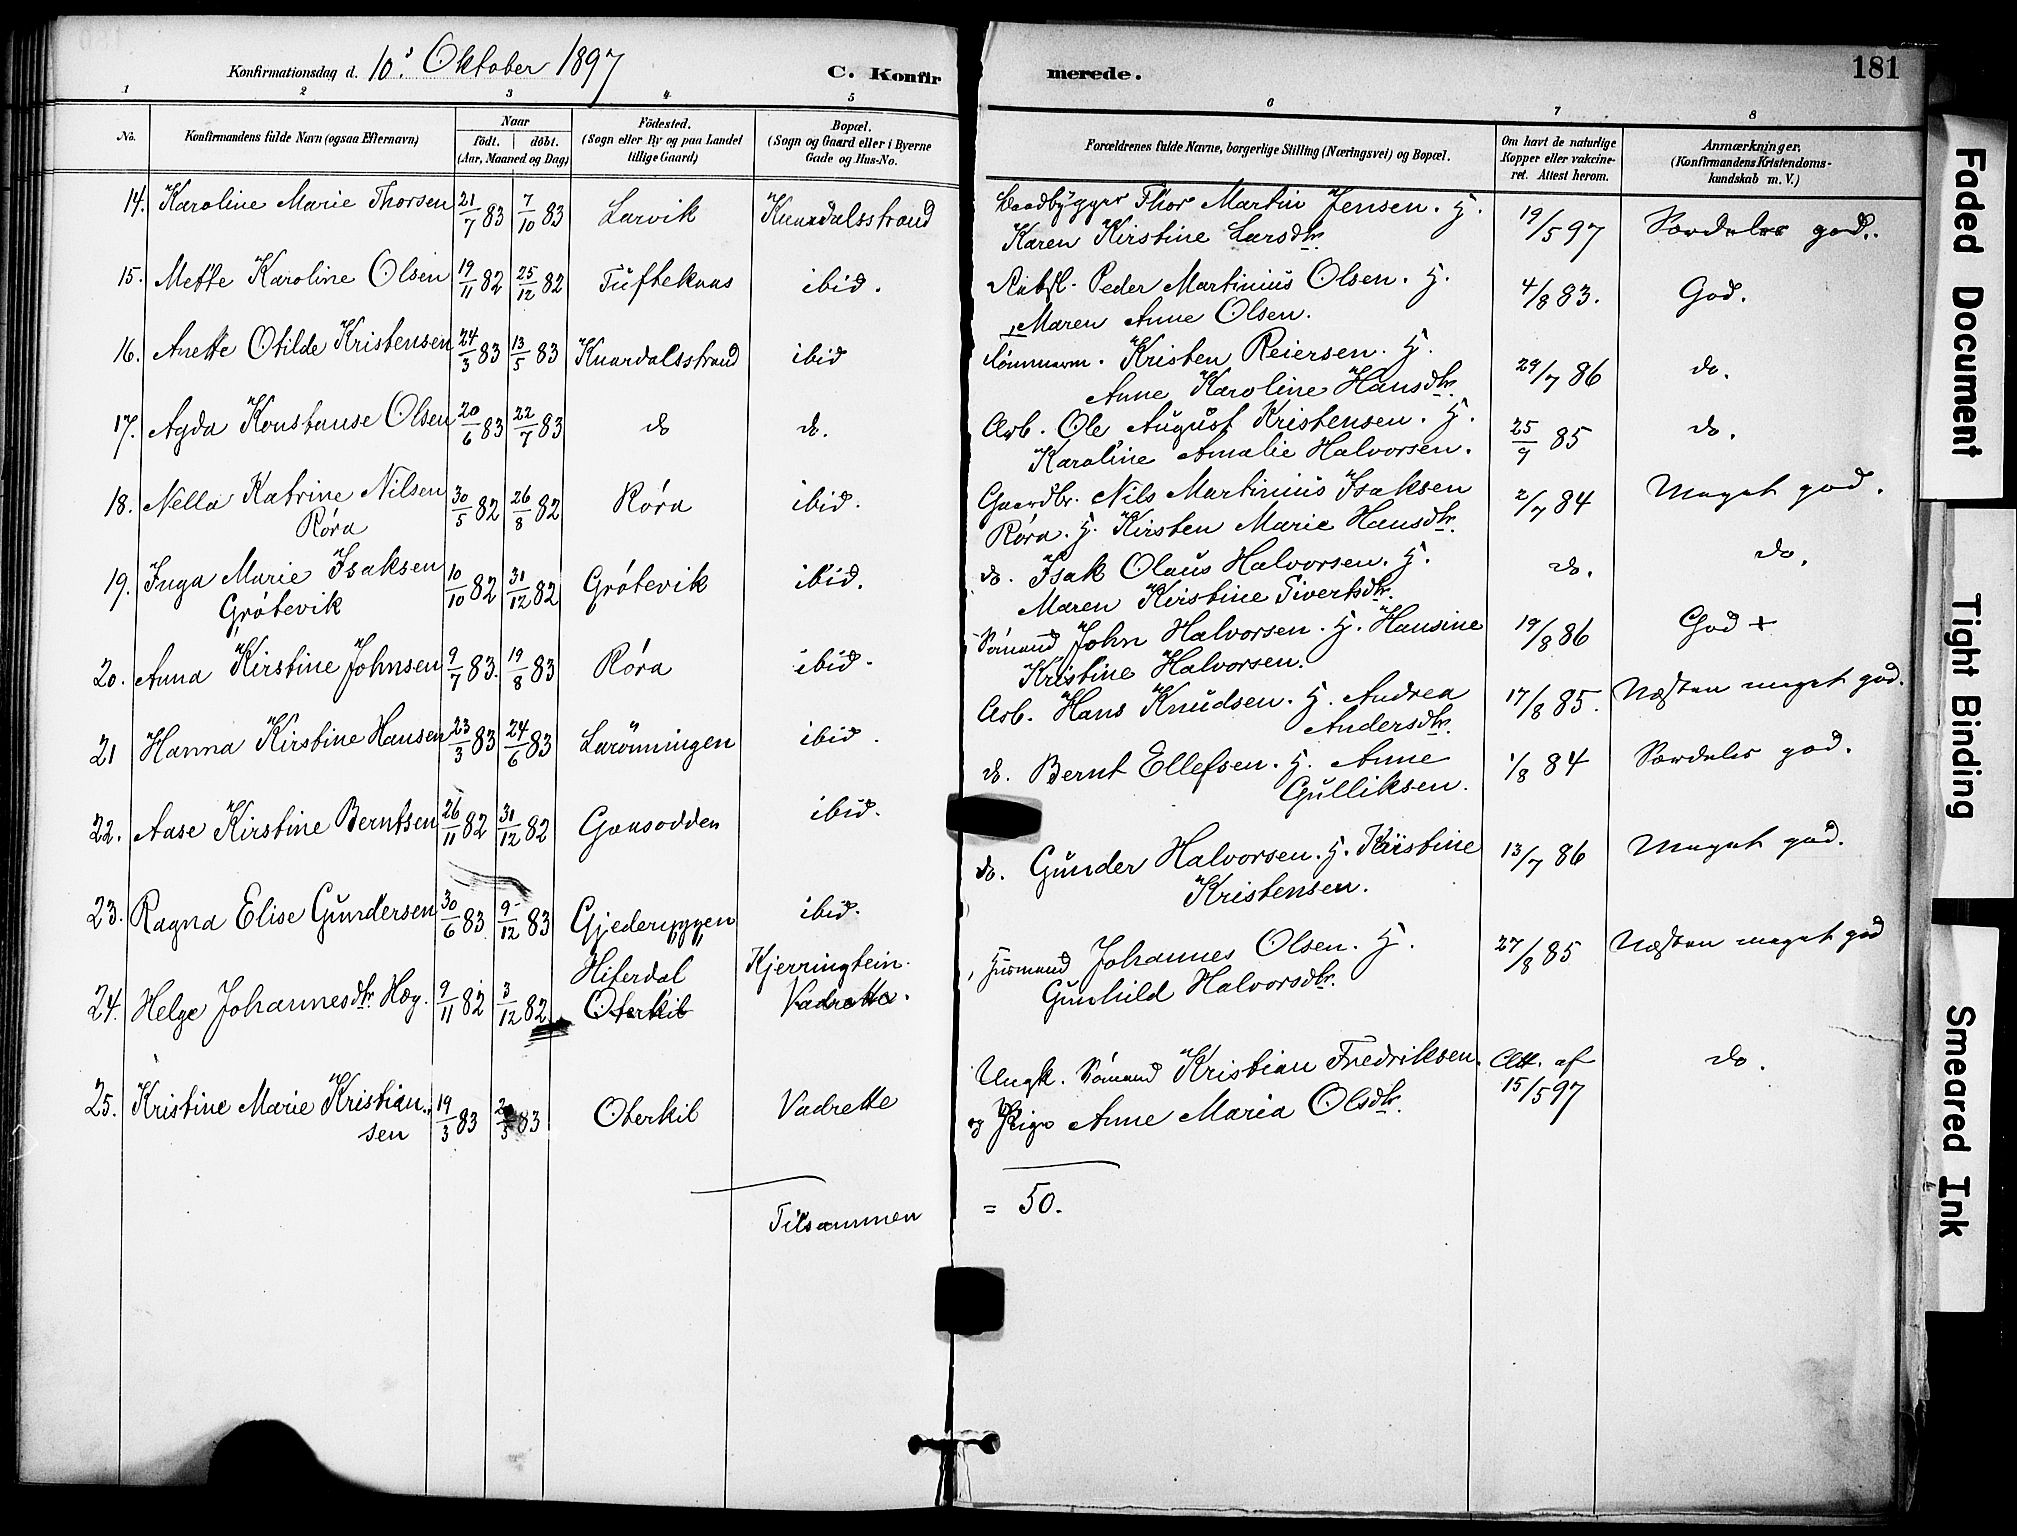 Konfirmationsdag d. 10' Oktober 1897
C. Konfirmerede.
181
1 2 3 4 5 6 7 8
No.
Konfirmandens fulde Navn (ogsaa Efternavn)
Naar
født. | døbt.
(Aar, Maaned og Dag)
Fødested.
(Sogn eller By og paa Landet
tillige Gaard)
Bopæl.
(Sogn og Gaard eller i Byerne
Gade og Hus-No.
Forældrenes fulde Navne, borgerlige Stilling (Næringsvei) og Bopæl.
Om havt de naturlige
Kopper eller vakcine-
ret. Attest herom.
Anmærkninger.
(Konfirmandens Kristendoms-
kundskab m. V.)
14. Karoline Marie Thorsen 21/7 83 7/10 83 Larvik Knardalsstrand Baadbygger Thor Martin Jensen. H. 19/5 97 Særdeles god.
Karen Kirstine Larsdtr.
15. Mette Karoline Olsen 19/11 82 25/12 82 Tuftekaas ibid. Peder Martinius Olsen. H. 4/8 83. God.
Maren Anne Olsen.
16. Anette Otilde Kristensen 24/3 83 13/5 83 Knardalsstrand ibid Tømmerm. Kristen Reiersen. H. 29/7 86 do.
Anne Karoline Hansdtr.
17. Agda Konstanse Olsen 20/6 83 22/7 83 do do. Arb. Ole August Kristensen. H. 25/9 85 do.
Karoline Amalie Halvorsen.
18. Nella Katrine Nilsen 30/5 82 26/8 82 Røra ibid. Gaardbr. Nils Martinius Isaksen 2/7 84 Meget god.
Røra Røra. H. Kirsten Marie Hansdtr.
19. Inga Marie Isaksen 10/10 82 31/12 82 Grøtevik ibid. do. Isak Olaus Halvorsen. H. do. do.
Grøtevik Maren Kirstine Sivertsdtr.
20. Anna Kirstine Johnsen 9/7 83. 19/8 83 Røra ibid. Sømand John Halvorsen. H. Hansine 19/8 86 God +
Kristine Halvorsen.
21 Hanna Kirstine Hansen 23/3 83 24/6 83 Larønningen ibid. Arb. Hans Knudsen. H. Andrea 17/8 85. Næsten meget god.
Andersdtr.
22. Aase Kirstine Berntsen 26/11 82 31/12 82 Gaasodden ibid. do. Bernt Ellefsen. H. Anne 1/8 84 Særdeles god.
Gulliksen.
23. Ragna Elise Gundersen 30/6 83 9/12 83 Gjeteryggen ibid. do. Gunder Halvorsen. H. Kristine 13/7 86 Meget god.
Kristensen.
24. Helge Johannesdtr. Hæg. 9/11 82 3/12 82 Hiterdal Kjerringtein. Husmand Johannes Olsen. H. 27/8 85 Næsten meget god
Oterkil Vadrette. Gunhild Halvorsdtr.
25. Kristine Marie Kristian- 19/3 83 20/5 83 Oterkil Vadrette Ungk. Sømand Kristian Fredriksen. Att. af do.
sen og Pige Anne Maria Olsdtr. 15/5 97
Tilsammen = 50.
Faded Document
Tight Binding
Smeared Ink